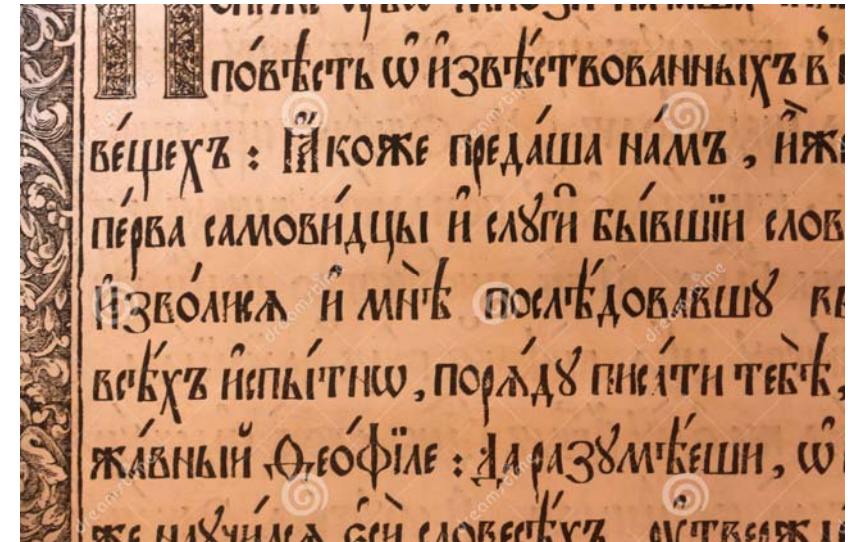 повѣ́сть ѡ҆ и҆звѣ́ствованныхъ в̾
ве́щехъ : Ꙗ҆́коже преда́ша на́мъ , и҆̀же
пе́рва самови́дцы и҆ слꙋги̑ бы́вшїи слов
И҆зво́лисѧ и҆ мнѣ̀ послѣ́довавшꙋ
всѣ́хъ и҆спы́тнѡ , порѧ́дꙋ писа́ти тебѣ̀ ,
жа́вный Ѳео́фїле : Да разꙋмѣ́еши , ѡ҆
же наꙋчи́лсѧ є҆сѝ словесѣ́хъ